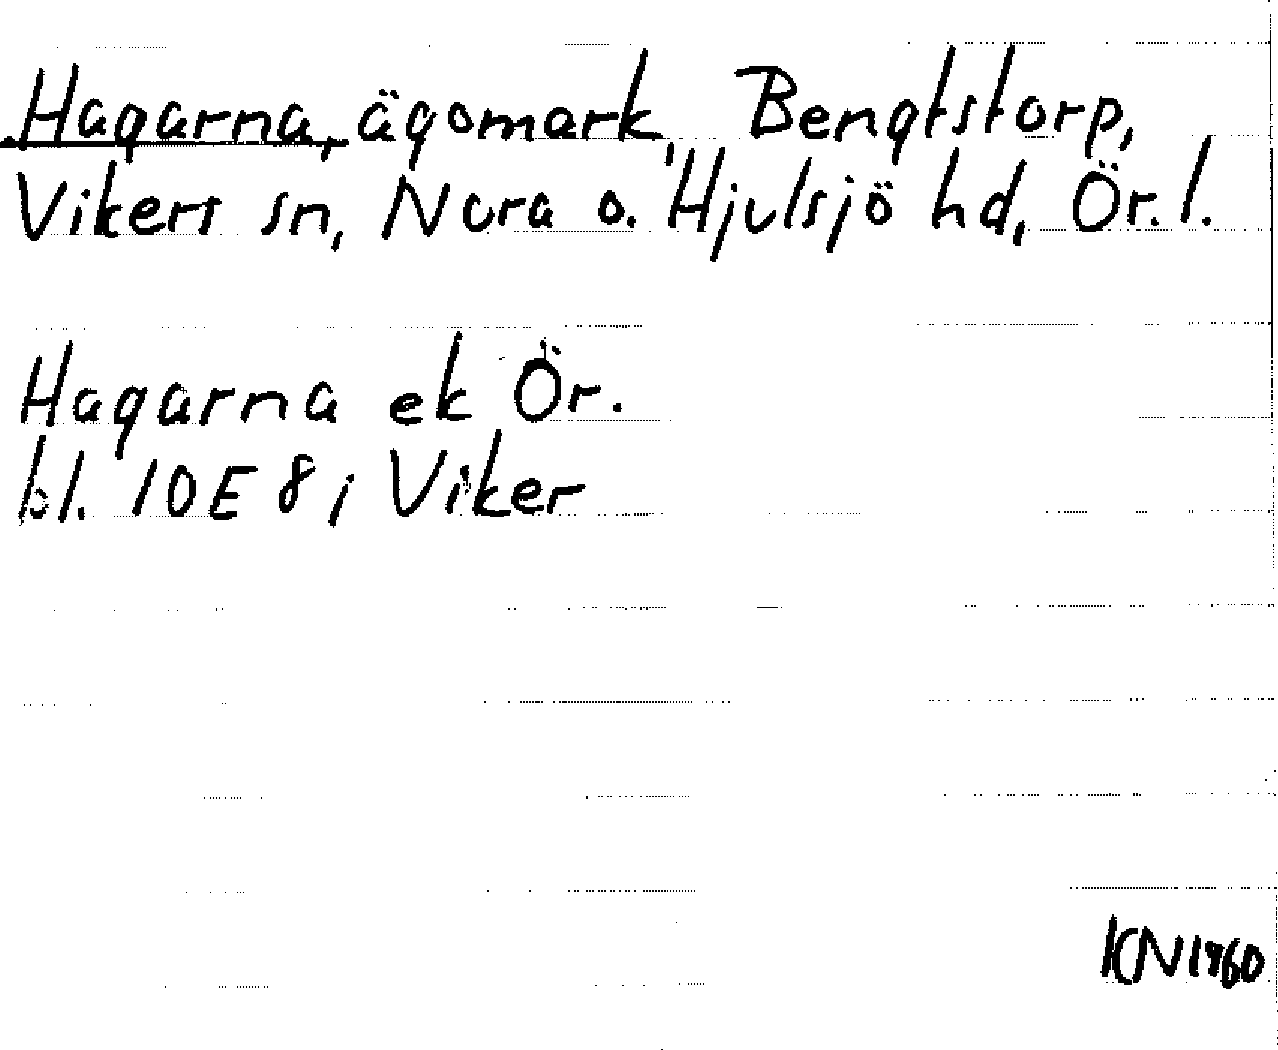 Hagarna, ägomark, Bengtstorp,
Vikers sn, Nora o. Hjulsjö hd, Ör. l.
Hagarna ek Ör.
bl. 10E 8 i Viker
KN 1960